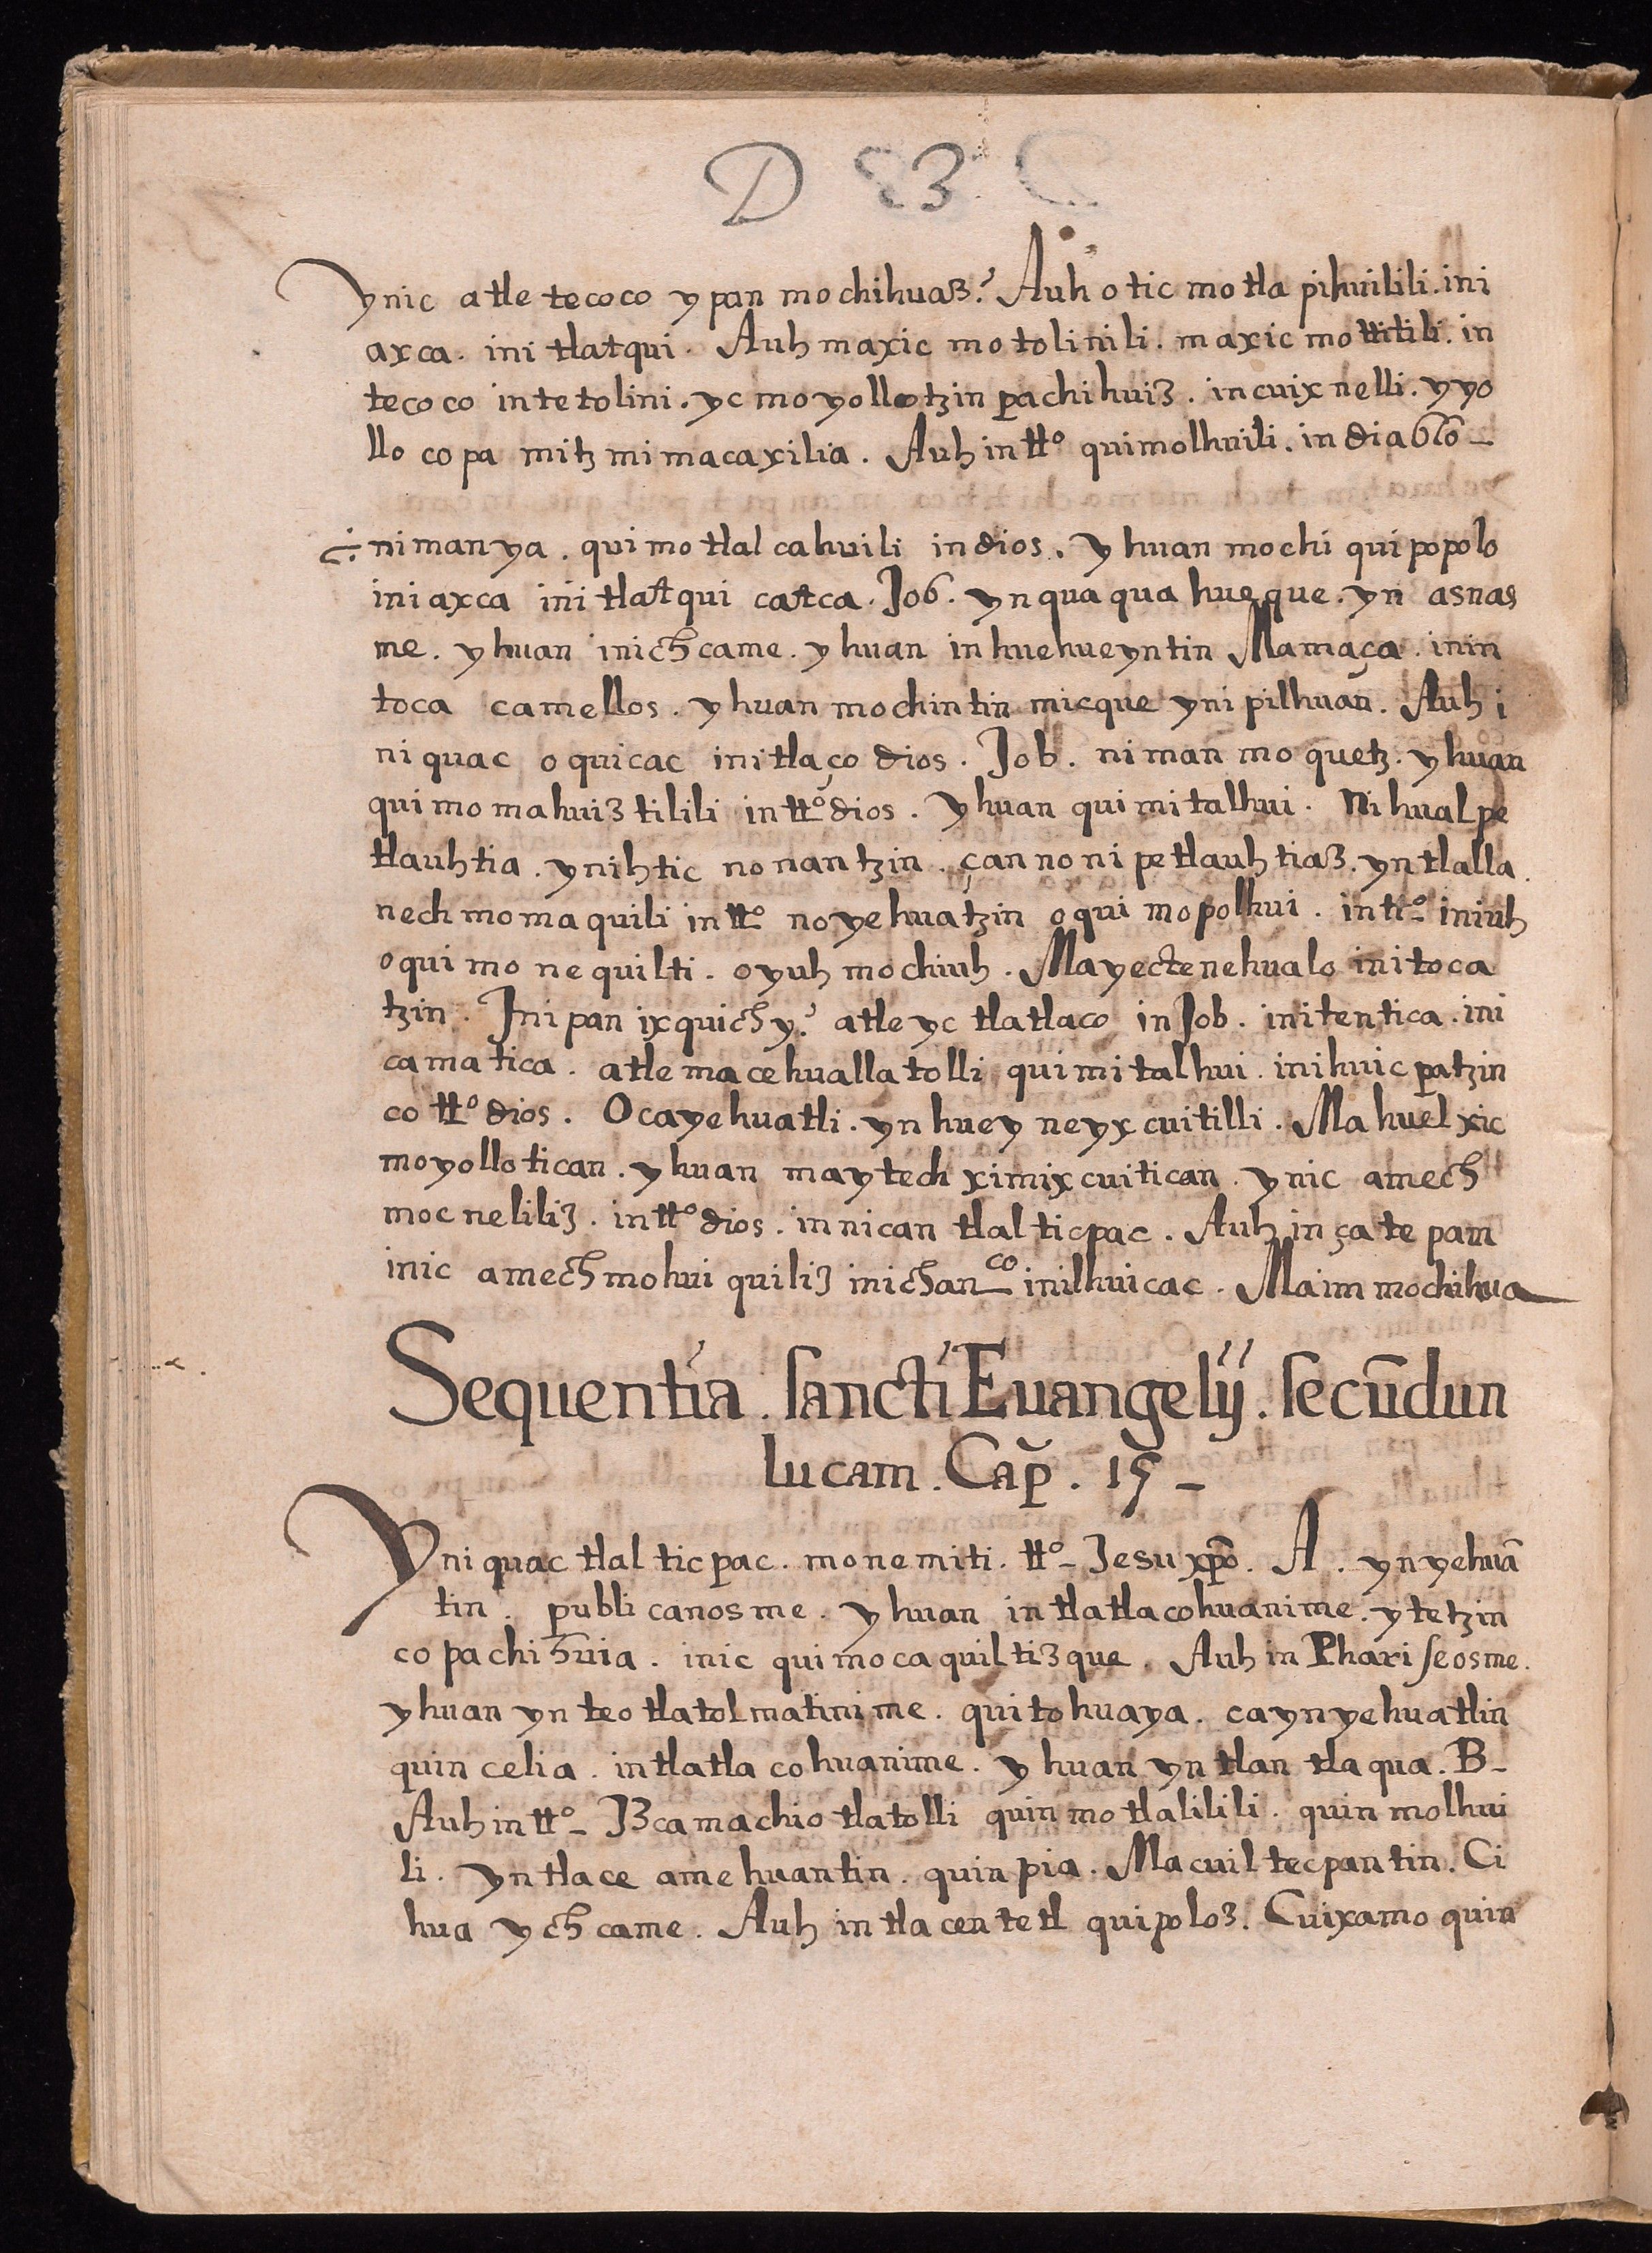 D 83
ynic atle tecoco ypan mochihuaz? Auh otic motla pihuilili. ini
axca. ini tlatqui. Auh maxic motolinili. maxic mottitili. in
tecoco intetolini. yc moyollotzin pachihuiz. incuix nelli. yyo
llo copa mitz mimacaxilia. Auh in tto quimolhuili. in diablo
nimanya. quimotlalcahuili indios. yhuan mochi quipopolo
iniaxca ini tlatqui catca. Job. ynquaquahueque. yn asnas
me. yhuan inichcame. yhuan inhuehueyntin Mamaça. inin
toca camellos. yhuan mochintin micque ynipilhuan. Auh i
niquac oquicac initlaço dios. Job. niman moquetz. yhuan
quimomahuiztilili in tto dios. yhuan quimitalhui. Nihualpe
tlauhtia. ynihtic nonantzin. çan no nipetlauhtiaz. yntlalla.
nechmomaquili in tto noyehuatzin oquimopolhui. in tto iniuh
oquimonequilti. oyuh mochiuh. Mayectenehualo initoca
tzin. Inipan ixquich y? atleyc tlatlaco inJob. initentica. ini
camatica. atle macehuallatolli quimitalhui. inihuicpatzin
co tto dios. Ocayehuatli. ynhuey neyxcuitilli. Mahuel xic
moyollotican. yhuan maytech ximixcuitican. ynic amech
mocneliliz. in tto dios. innican tlalticpac. Auh inçatepan
inic amechmohuiquiliz inichanco inilhuicac. Maim mochihua
Sequentia. sancti Euangelij. secūdun
lucam. Cap. 15
Yniquac tlalticpac. monemiti. tto Jesu xpo. A. ynyehuā
tin. publicanosme. yhuan intlatlacohuanime. ytetzin
copachihuia. inic quimocaquiltizque. Auh in Phariseosme.
yhuan ynteotlatolmatinime. quitohuaya. caynyehuatlin
quincelia. intlatlacohuanime. yhuan yntlan tlaqua. B
Auh in tto Izcamachiotlatolli quinmotlalilili. quinmolhui
li. yntlace amehuantin. quinpia. Macuiltecpantin. Ci
hua ychcame. Auh intlacentetl quipoloz. Cuixamo quin